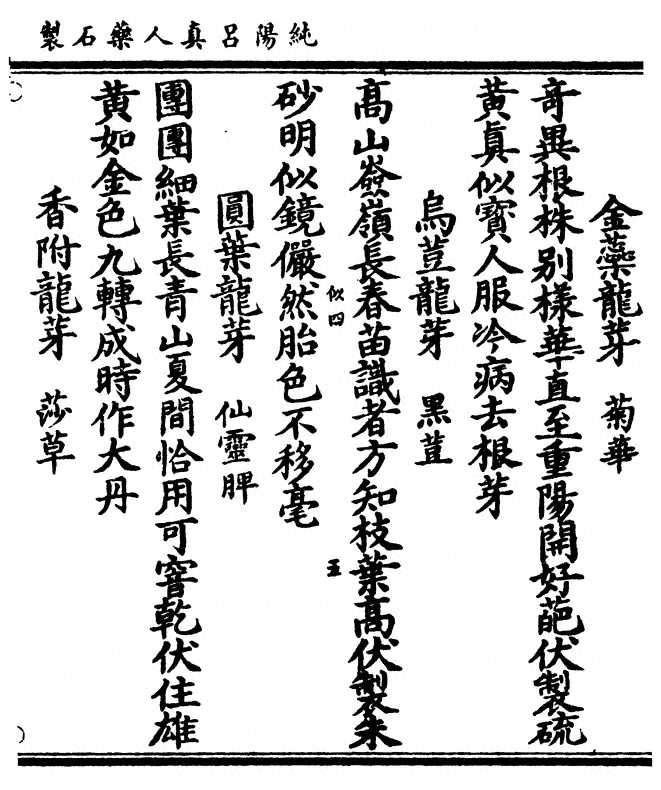 純陽呂真人藥石製
金蘂龍芽　菊華
竒異根株别樣華直至重陽開好葩伏製硫
黃真似寳人服冷病去根芽
烏荳龍芽　黑荳
髙山嶺長春苗識者方知枝葉髙伏製朱
砂明似鏡儼然胎色不移毫
似四
五
圓葉龍芽　仙靈脾
團團細葉長青山夏間恰用可窨乾伏住雄
黃如金色九轉成時作大丹
香附龍芽　莎草